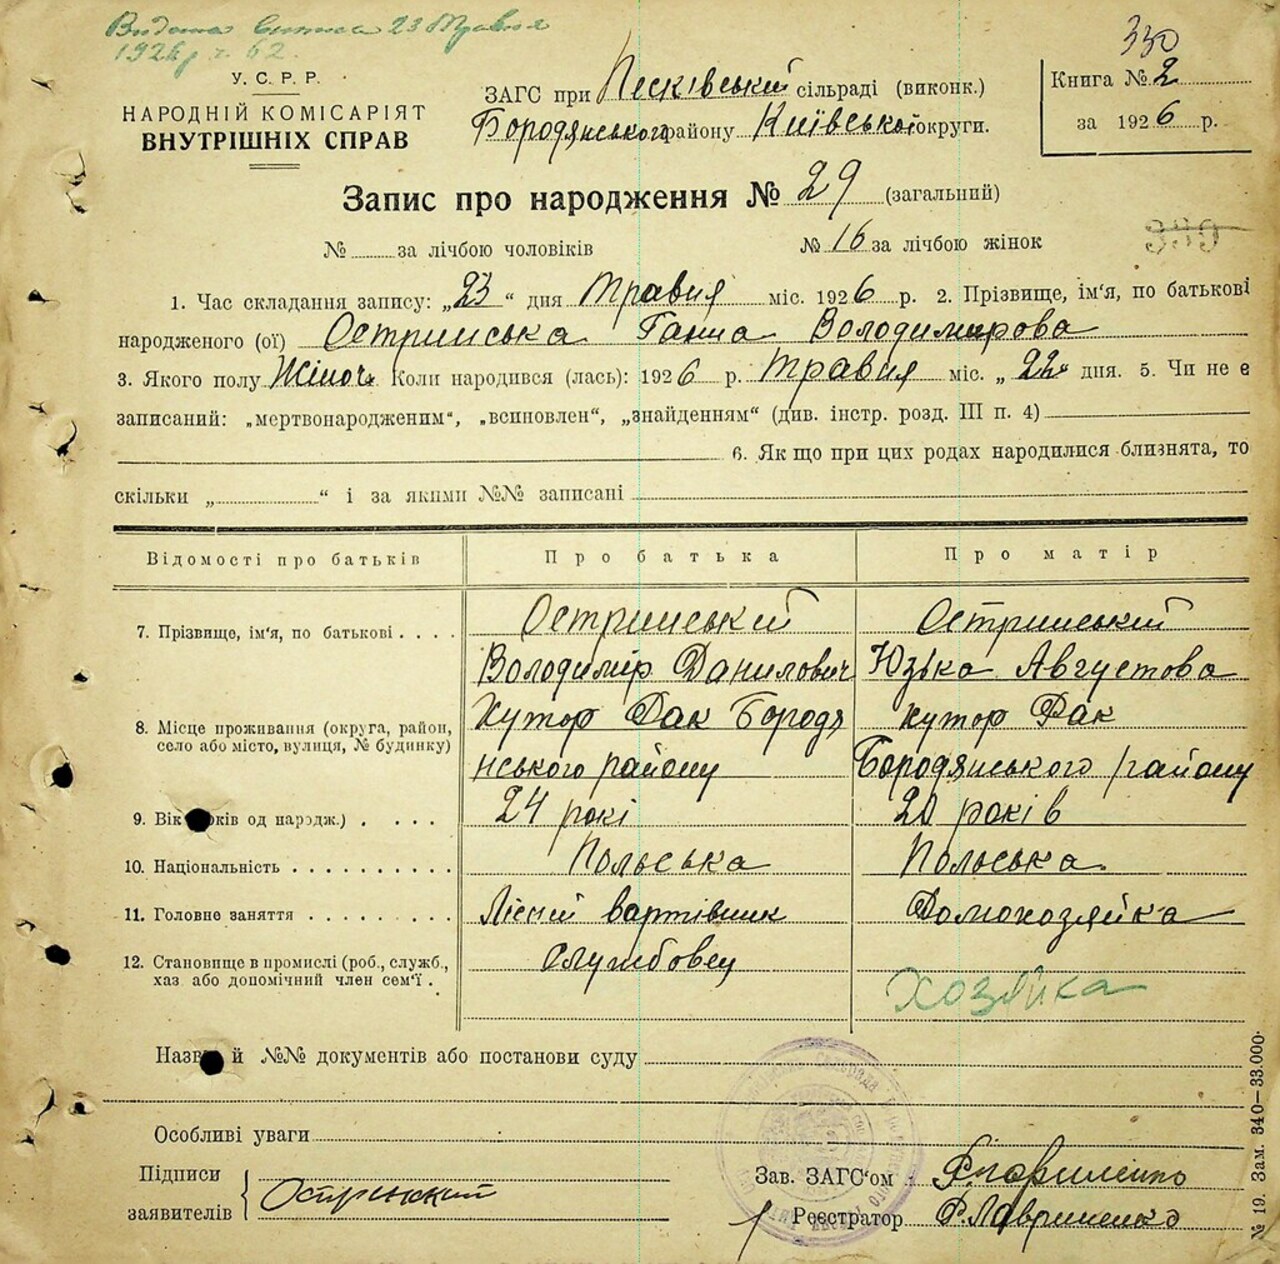 Видана виписка 23 Травня
1926 р. ч. 62
330
У. С. Р. Р.
НАРОДНІЙ КОМІСАРІЯТ
ВНУТРІШНІХ СПРАВ
ЗАГС при Пісківський сільраді (виконк.)
Бородянського району Київської округи.
Книга № 2
за 1926 р.
Запис про народження № 29 (загальний)
№ за лічбою чоловіків № 16 за лічбою жінок
1. Час складання запису: „23“ дня Травня міс. 1926 р. 2. Прізвище, ім'я, по батькові
народженого (ої) Остринська Ганна Володимирова
3. Якого полу Жіноч. Коли народився (лась): 1926 р. Травня міс. „22“ дня. 5. Чи не є
записаний: „мертвонародженим“, „всиновлен“, „знайденням“ (див. інстр. розд. III п. 4)
6. Як що при цих родах народилися близнята, то
скільки „ “ і за якими №№ записані
Відомості про батьків Про батька Про матір
7. Прізвище, ім'я, по батькові . . . . Остринський Остринський
Володимір Данилович Юзька Августова
8. Місце проживання (округа, район, село або місто, вулиця, № будинку) Хутор Фак Бородя хутор Фак
нського району Бородянського району
9. Вік років од народж.) . . . . 24 рокі 20 років
10. Національність . . . . . . . . . . Польська Польська
11. Головне заняття . . . . . . . . . Лісний вартівник Домохозяйка
12. Становище в промислі (роб., служб., хаз або допомічний член сем'ї . Службовец
Хозяйка
Назва й №№ документів або постанови суду
Особливі уваги
Підписи
заявителів Остринский
Зав. ЗАГС'ом
Реєстратор Ф. Лавриненко
№ 19. Зам. 340—33.000.